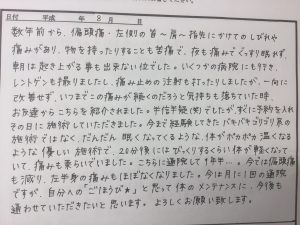 日付　平成　　年　8月　　日
数年前から、偏頭痛・左側の首～肩～指先にかけてのしびれや
痛みがあり、物を持ったりすることも苦痛で、夜も痛みでぐっすり眠れず、
朝は起き上がる事も出来ない位でした。いくつかの病院にも行き、
レントゲンも撮りましたし、痛み止めの注射も打ったりしましたが、一向に
改善せず、いつまでこの痛みが続くのだろうと気持ちも落ちていた時、
お友達からこちらを紹介されました。半信半疑(笑)でしたが、すぐに予約を入れ
その日に施術していただきました。今まで経験してきたバキバキゴリゴリ系の
施術ではなく、だんだん眠くなってくるような、体がポカポカ温くなる
ような優しい施術で、20分後にはびっくりするくらい体が軽くなって
いて、痛みも楽らいでいました。こちらに通院して1年半…。今では偏頭痛
も減り、左半身の痛みもほぼなくなりました。今は月に1回の通院
ですが、自分への"ごほうび"と思って体のメンテナンスに、今後も
通わせていただきたいと思います。よろしくお願い致します。